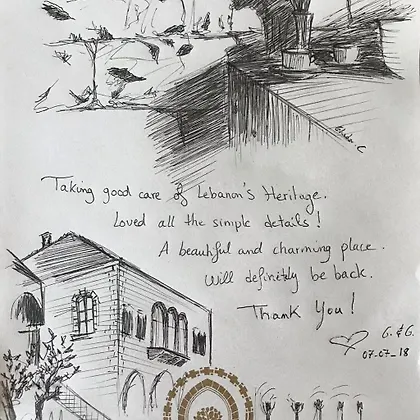 Taking good care of Lebanon's Heritage.
Loved all the simple details!
A beautiful and charming place.
Will definitely be back.
Thank You!
G. & G.
07-07_18